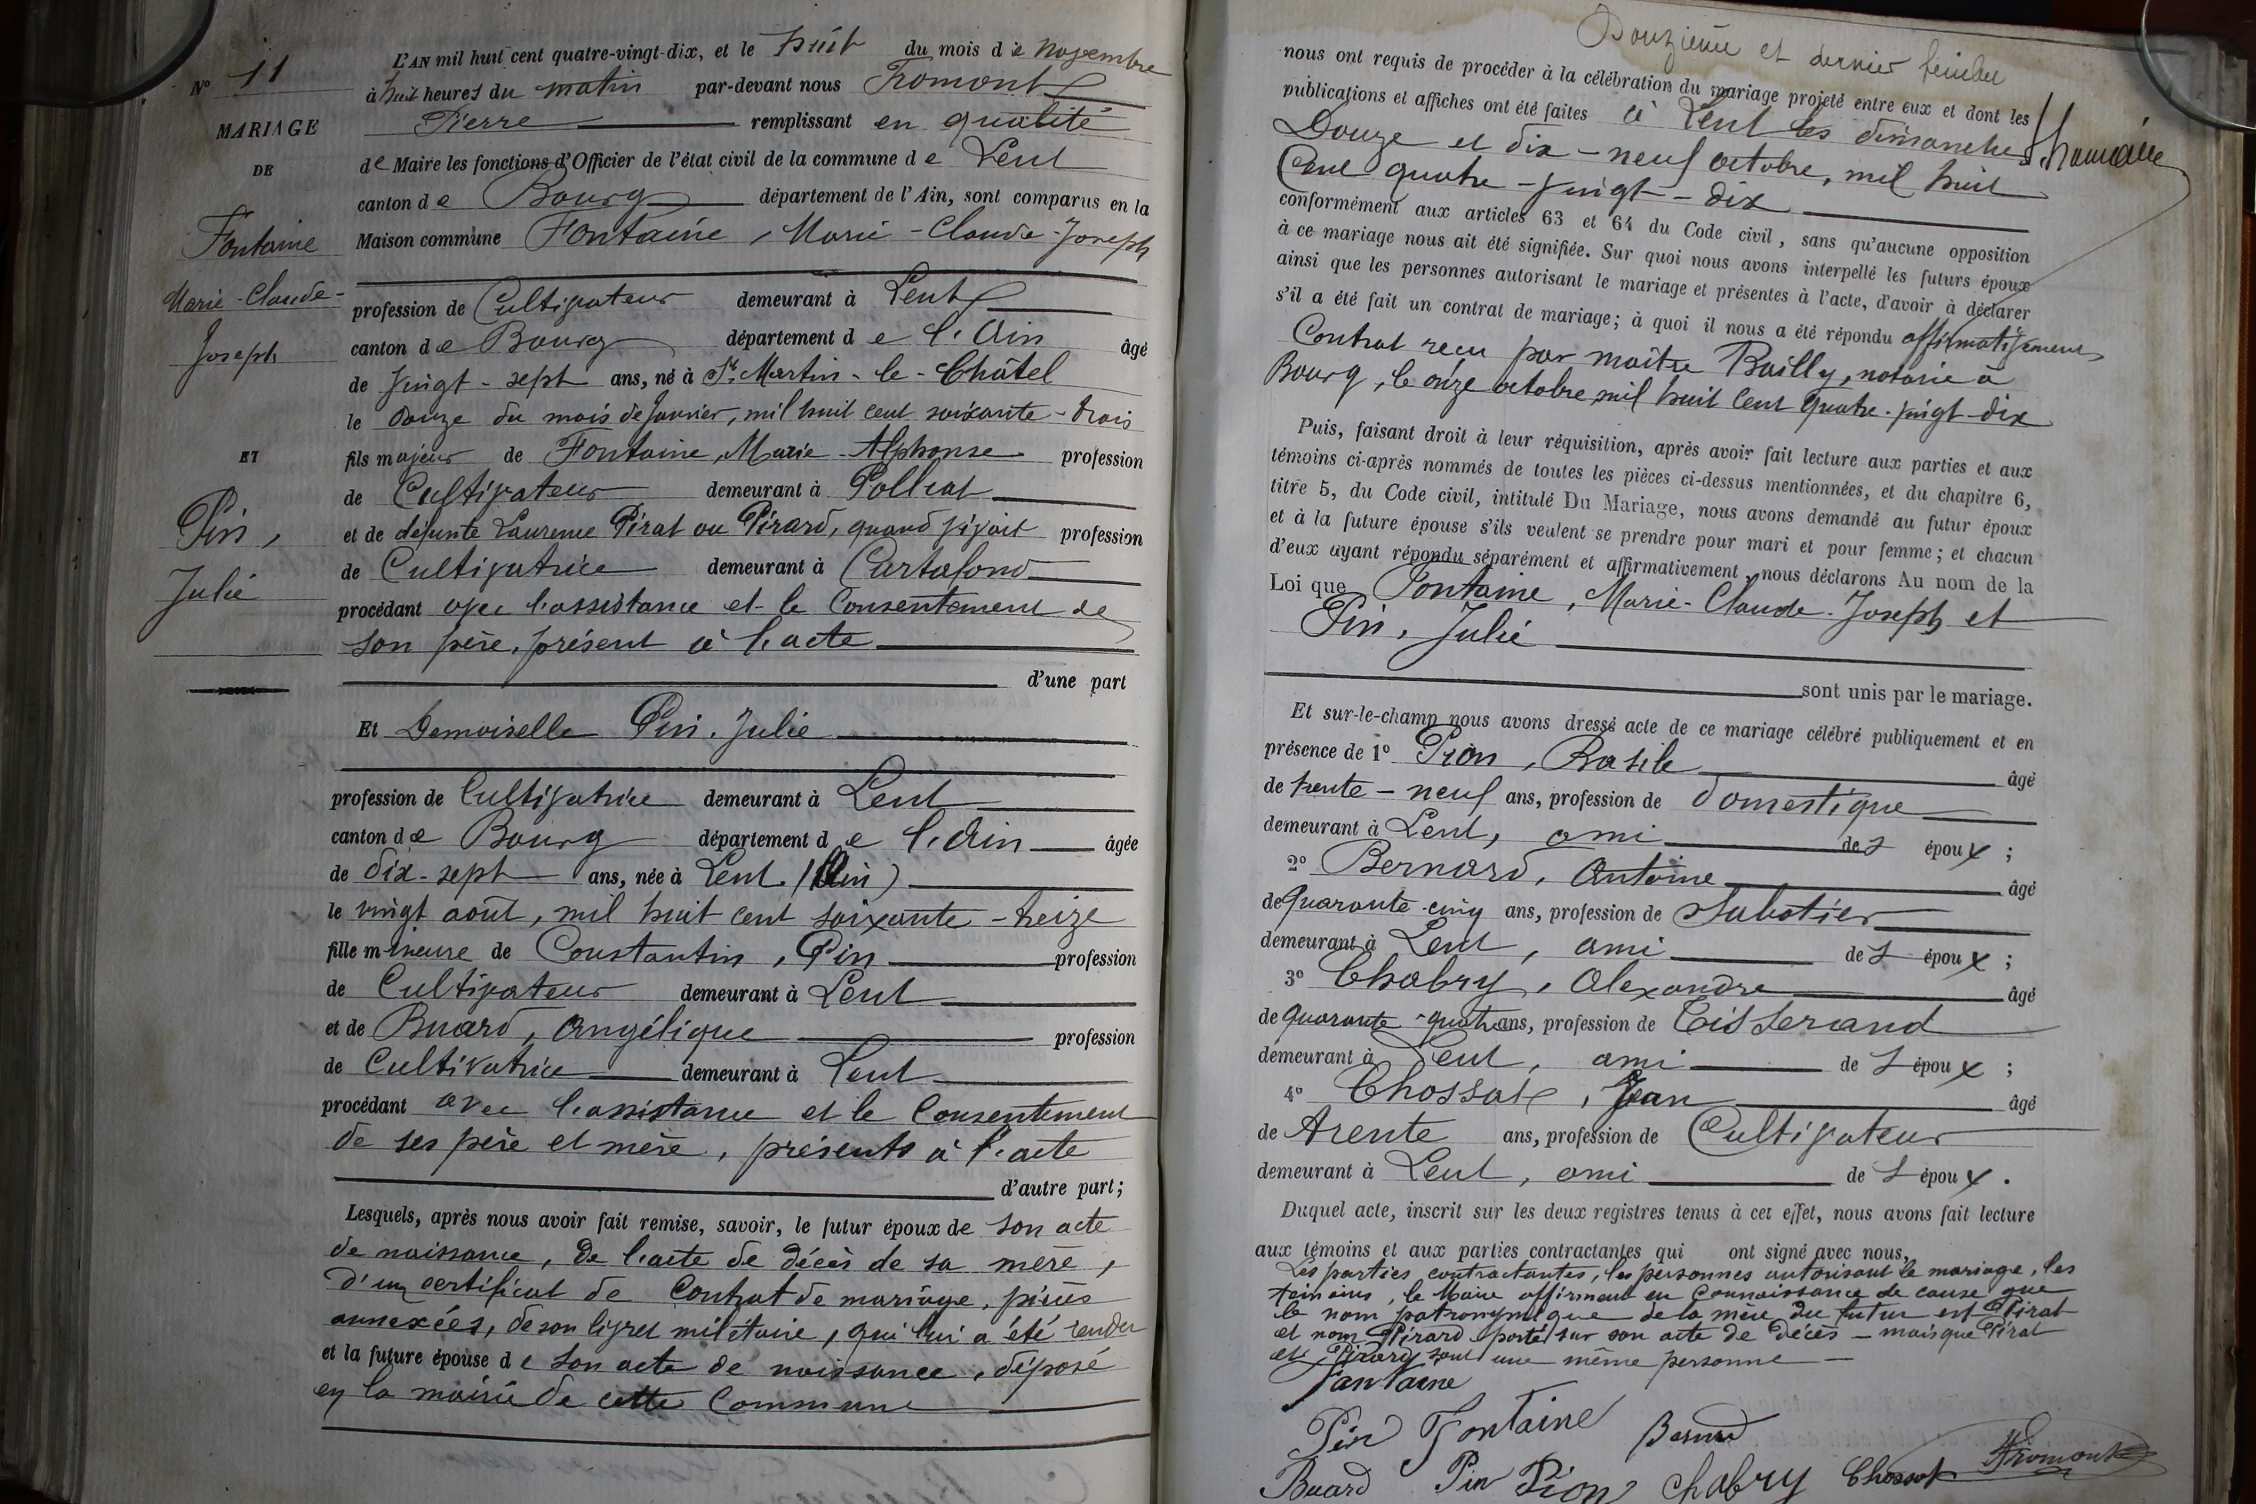 N° 11
MARIAGE
DE
Fontaine
Marie-Claude-
Joseph
ET
Pin,
Julie
L'AN mil huit cent quatre-vingt-dix, et le huit du mois de novembre
à huit heures du matin par-devant nous Fromont
Pierre remplissant en qualité
de Maire les fonctions d'Officier de l'état civil de la commune de Lent
canton de Bourg département de l'Ain, sont comparus en la
Maison commune Fontaine, Marie-Claude-Joseph
profession de Cultivateur demeurant à Lent
canton de Bourg département de l'Ain âgé
de vingt-sept ans, né à St. Martin-le-Châtel
le douze du mois de Janvier, mil huit cent soixante-trois
fils majeur de Fontaine, Marie-Alphonse profession
de Cultivateur demeurant à Polliat
et de défunte Laurence Pirat ou Pirard, quand vivait profession
de Cultivatrice demeurant à Curtafond
procédant avec l'assistance et le Consentement de
son père, présent à l'acte
d'une part
Et Demoiselle Pin, Julie
profession de Cultivatrice demeurant à Lent
canton de Bourg département de l'Ain âgée
de dix-sept ans, née à Lent (Ain)
le vingt août, mil huit cent soixante-treize
fille mineure de Constantin, Pin profession
de Cultivateur demeurant à Lent
et de Buard, Angélique profession
de Cultivatrice demeurant à Lent
procédant avec l'assistance et le Consentement
de ses père et mère, présents à l'acte
d'autre part;
Lesquels, après nous avoir fait remise, savoir, le futur époux de son acte
de naissance, de l'acte de décès de sa mère,
d'un certificat de Contrat de mariage, pièces
annexées, de son livret militaire, qui lui a été rendu
et la future épouse de son acte de naissance, déposé
en la mairie de cette Commune
Douzième et dernier feuillet
nous ont requis de procéder à la célébration du mariage projeté entre eux et dont les
publications et affiches ont été faites à Lent les dimanches
Douze et dix-neuf octobre, mil huit
Cent quatre-vingt-dix
conformément aux articles 63 et 64 du Code civil, sans qu'aucune opposition
à ce mariage nous ait été signifiée. Sur quoi nous avons interpellé les futurs époux
ainsi que les personnes autorisant le mariage et présentes à l'acte, d'avoir à déclarer
s'il a été fait un contrat de mariage; à quoi il nous a été répondu affirmativement
Contrat reçu par maître Bailly, notaire à
Bourg, le onze octobre mil huit cent quatre-vingt-dix
Puis, faisant droit à leur réquisition, après avoir fait lecture aux parties et aux
témoins ci-après nommés de toutes les pièces ci-dessus mentionnées, et du chapitre 6,
titre 5, du Code civil, intitulé Du Mariage, nous avons demandé au futur époux
et à la future épouse s'ils veulent se prendre pour mari et pour femme; et chacun
d'eux ayant répondu séparément et affirmativement, nous déclarons Au nom de la
Loi que Fontaine, Marie-Claude-Joseph et
Pin, Julie
sont unis par le mariage.
Et sur-le-champ nous avons dressé acte de ce mariage célébré publiquement et en
présence de 1° Pion, Basile âgé
de trente-neuf ans, profession de domestique
demeurant à Lent, ami des époux;
2° Bernard, Antoine âgé
de quarante-cinq ans, profession de Sabotier
demeurant à Lent, ami des époux;
3° Chabry, Alexandre âgé
de quarante-quatre ans, profession de Tisserand
demeurant à Lent, ami des époux;
4° Chossat, Jean âgé
de trente ans, profession de Cultivateur
demeurant à Lent, ami des époux.
Duquel acte, inscrit sur les deux registres tenus à cet effet, nous avons fait lecture
aux témoins et aux parties contractantes qui ont signé avec nous.
Les parties contractantes, les personnes autorisant le mariage, les
témoins, le Maire affirment en connaissance de cause que
le nom patronymique de la mère du futur est Pirat
et nom Pirard porté sur son acte de décès - mais que Pirat
et Pirard sont une même personne
Fantaine
Pin Fontaine Bernard
Buard Pin Pion Chabry Chossat Fromont